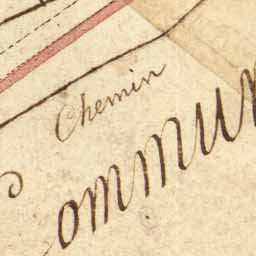 Chemin
Commun